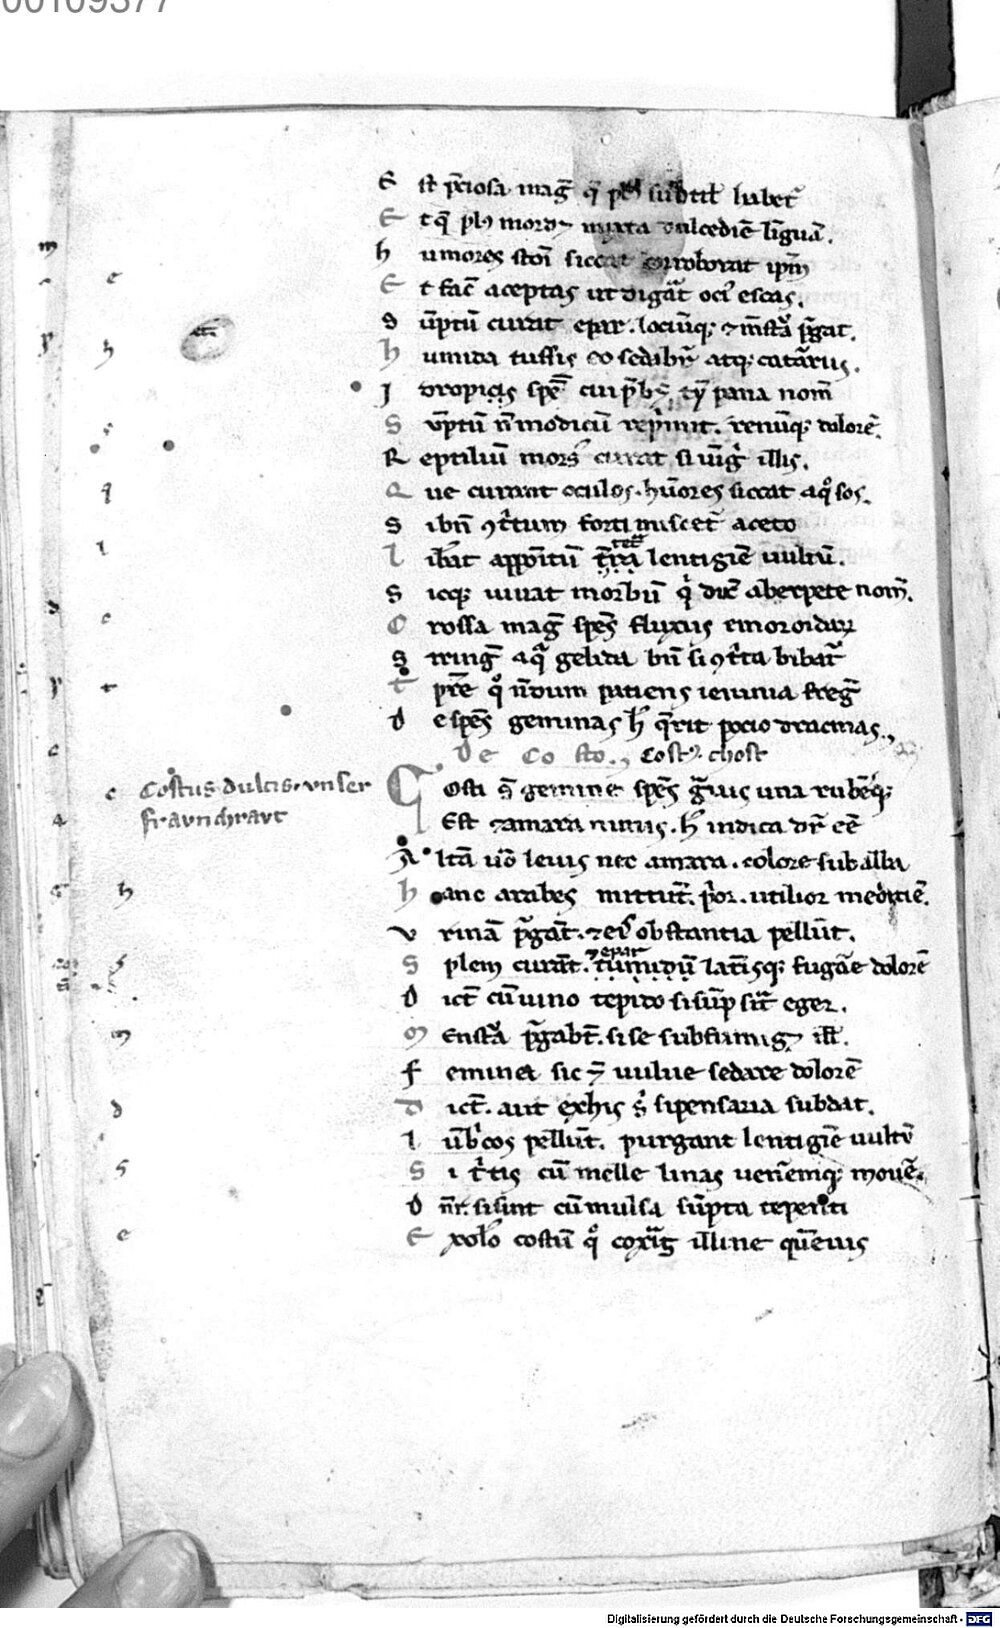 00109377
E st p̄ciosa mag̅ q̄ subtil̄ habet᷑
E t q̄ pl᷒ mordꝫ iuxta dulcediē līguā.
h umores stoī siccat corroborat ip̄m
E t fac̄ aceptas ut digāt oci᷒ escas.
S ūptū curat epar. locūqꝫ ⁊ mēstᷓa p̄gat.
h umida tussis eo sedabit᷑ atqꝫ catarrus.
I dropicis spē̄ cui p̄bꝫ ty̅pana nom̄
S ūptū n̄ modicū rep̄mit. renūqꝫ dolorē.
R eptiliū mors᷒ curat si uīgᷓ illis.
Q ue curant oculos. hūores siccat aq̊sos.
S i bn̄ ꝯt̄tum forti miscet᷑ aceto
l ib̄at appoītū t̄ra lentigiē uultū.
S icqꝫ iuuat morbū q̇ dic̄ abexpete nom̄.
C rossa mag̅ spēs fluxus emoroidaꝝ
S tring̅ aqᷓ gelida bn̄ si ꝯt̄ta bibat᷑
T p̄re q̊ n̄dum patiens ieiunia freg̅
D e spēs geminas h̄ q̄rit pocio dracmas.,
De Costo., Cost᷒. chost
Costus dulcis. vnser
fravnchravt
C osti s̄ gemine spēs gᷓuis una rubēqꝫ
Est ⁊ amara nimis. h̄ indica dr̄ eē
A ltā uō leuis nec amara. colore sub alba
h anc arabes mittūt. p̄or. utilior mediciē.
V rinā p̄gāt. ⁊ ei᷒ obstantia pellūt.
S plem curāt. ⁊ epar tumidū latisqꝫ fugāe dolorē
D ict̄ cū uino tepido si sūpsit᷑ eger.
M enstᷓa p̄gabt̄. si se subfumigꝫ ill̄.
F eminea sic ⁊ uulue sedare dolorē
D ict̄. aut ex his s̄ si pensaria subdat.
L ūb̄cos pellūt. purgant lentigiē uultꝰ
S i t̄tis cū melle linas uenēmqꝫ mouē.
D n̄r. si sint cū mulsa sūpta tepenti
E x ol̄o costū q̊ coxāg illine quēuis
Digitalisierung gefördert durch die Deutsche Forschungsgemeinschaft - DFG